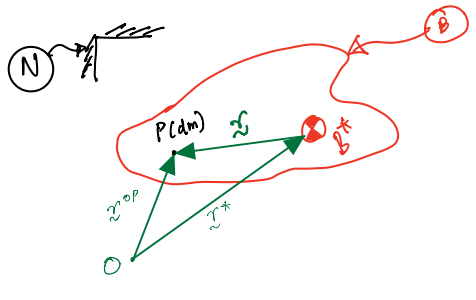 N
B
P(dm)
r
B*
r^OP
r*
O